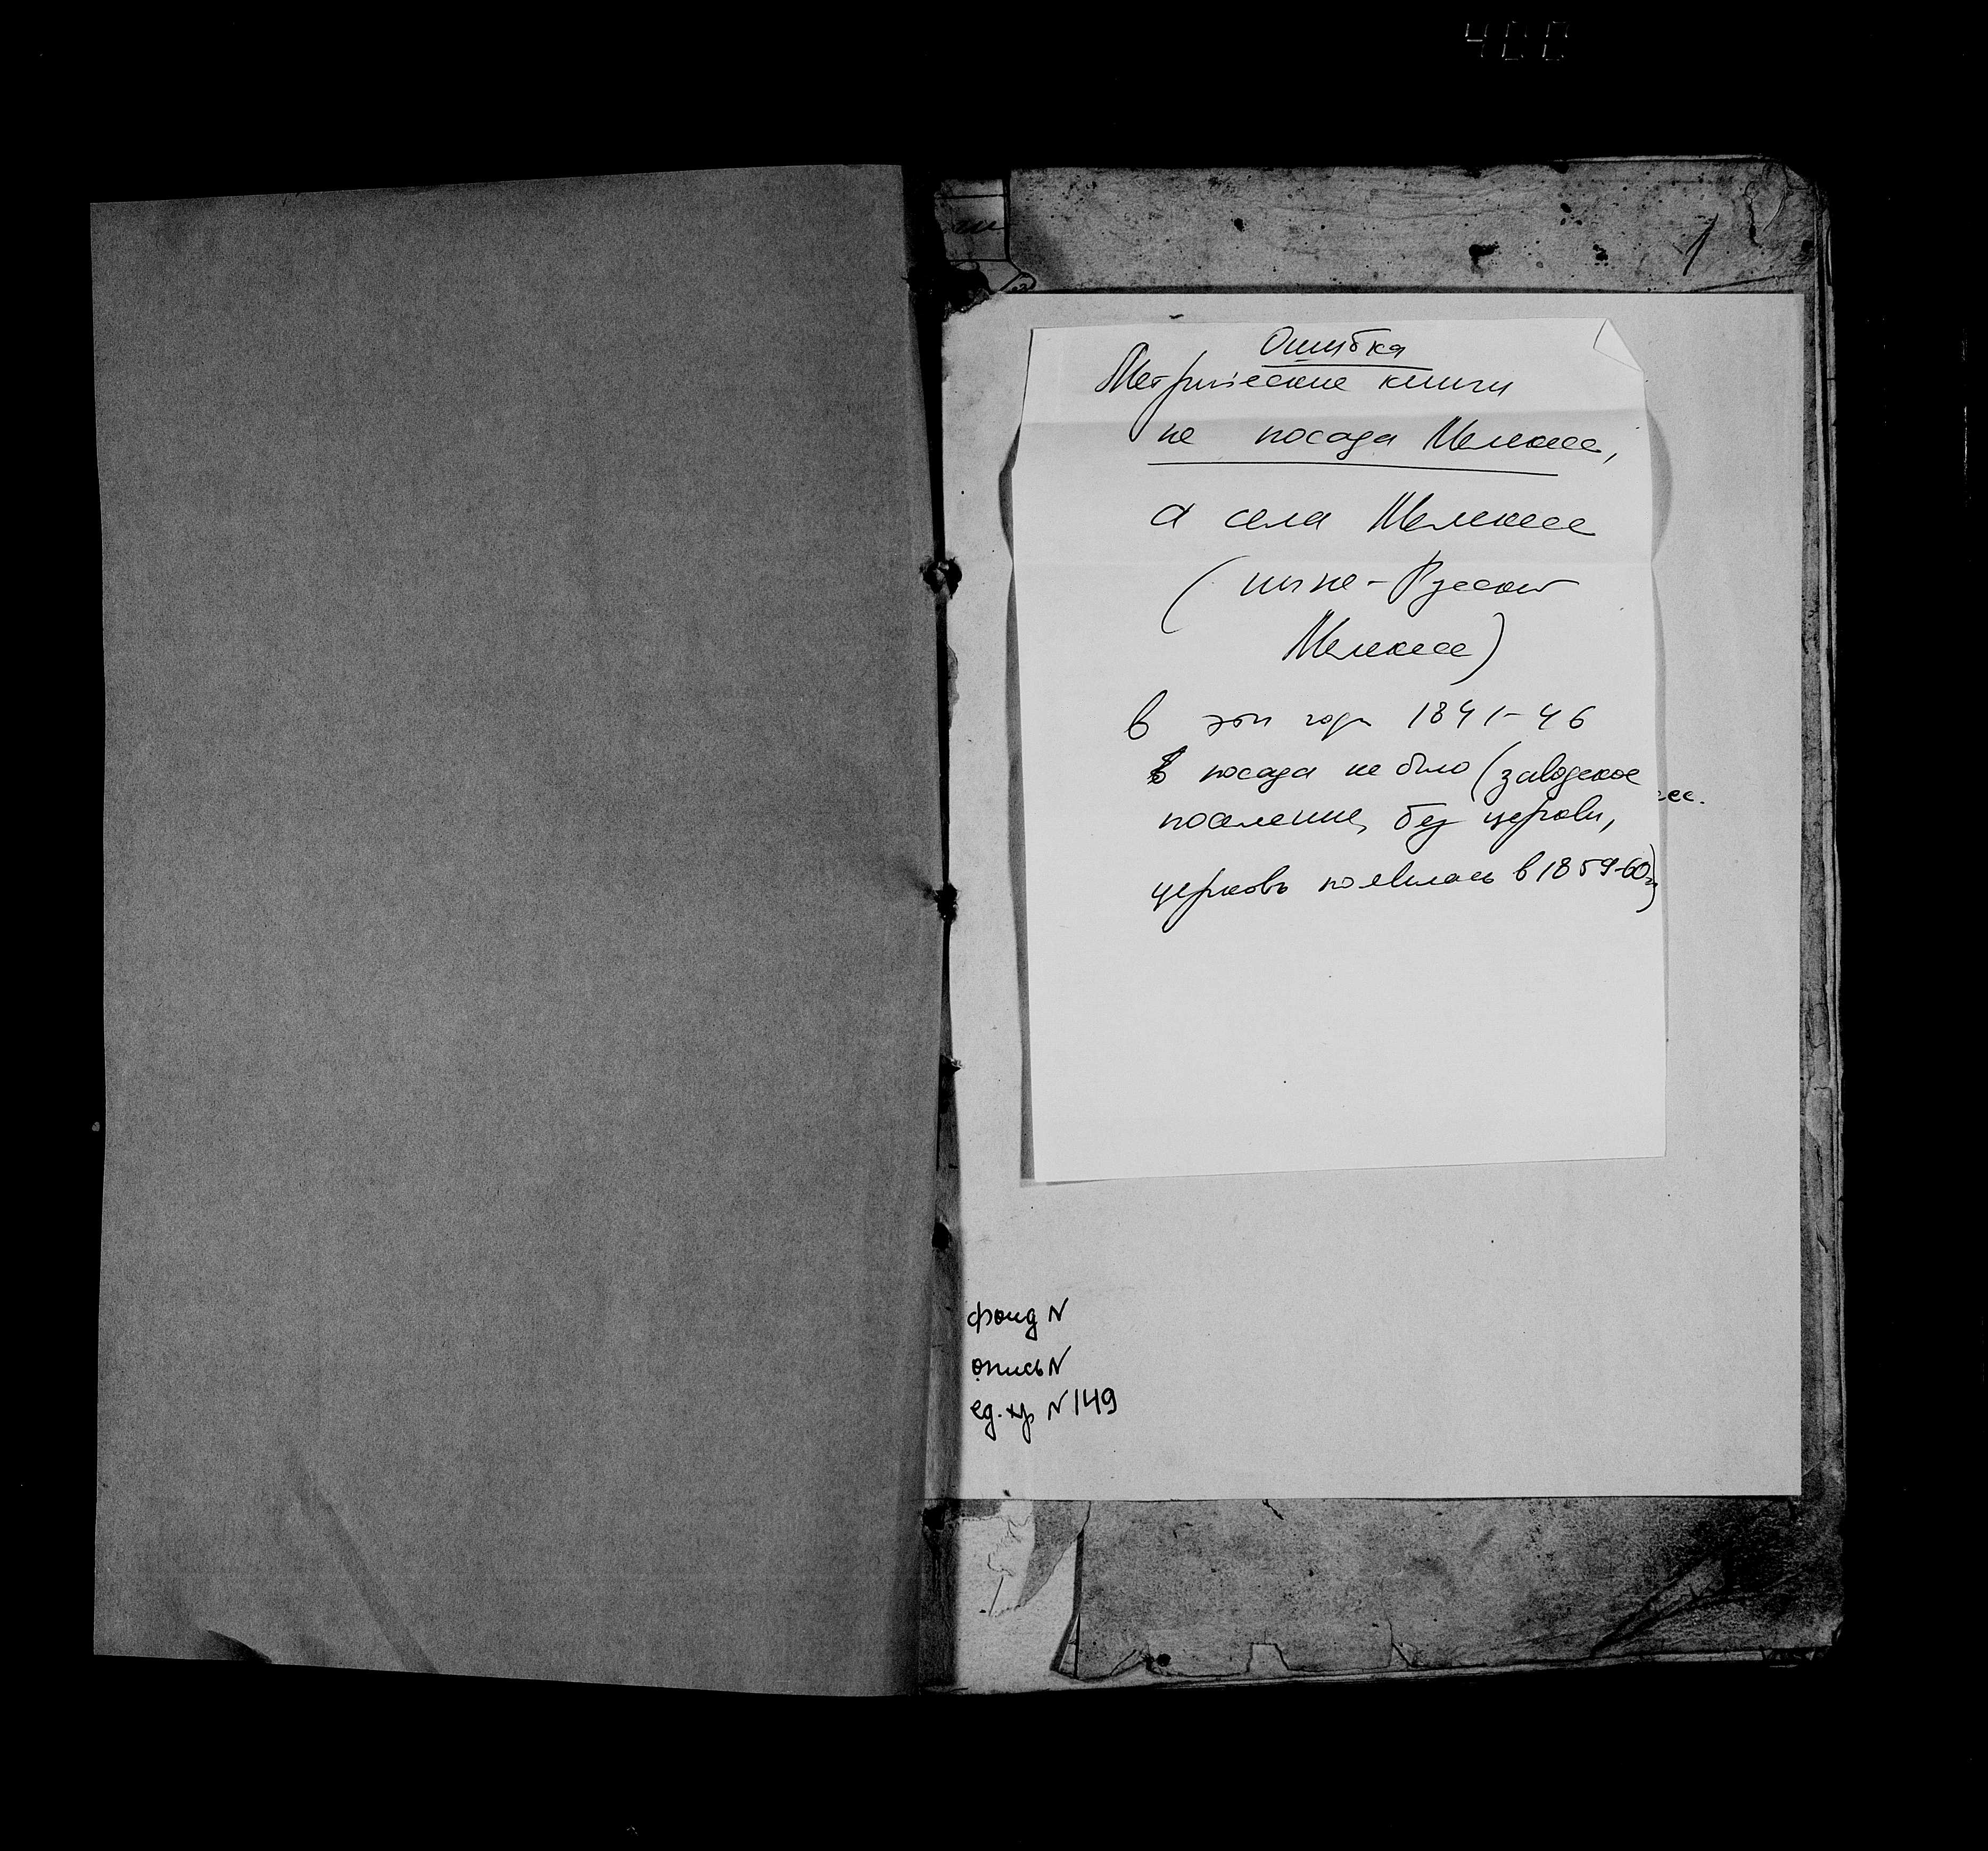 400
1
Ошибка
Метрические книги
не посада Мелекесс,
а села Мелекесс
(ныне-Русский
Мелекесс)
в эти годы 1841-46
посада не было (заводское
поселение, без церкви,
церковь появилась в 1859-60гг)
фонд N
опись N
ед. хр N 149